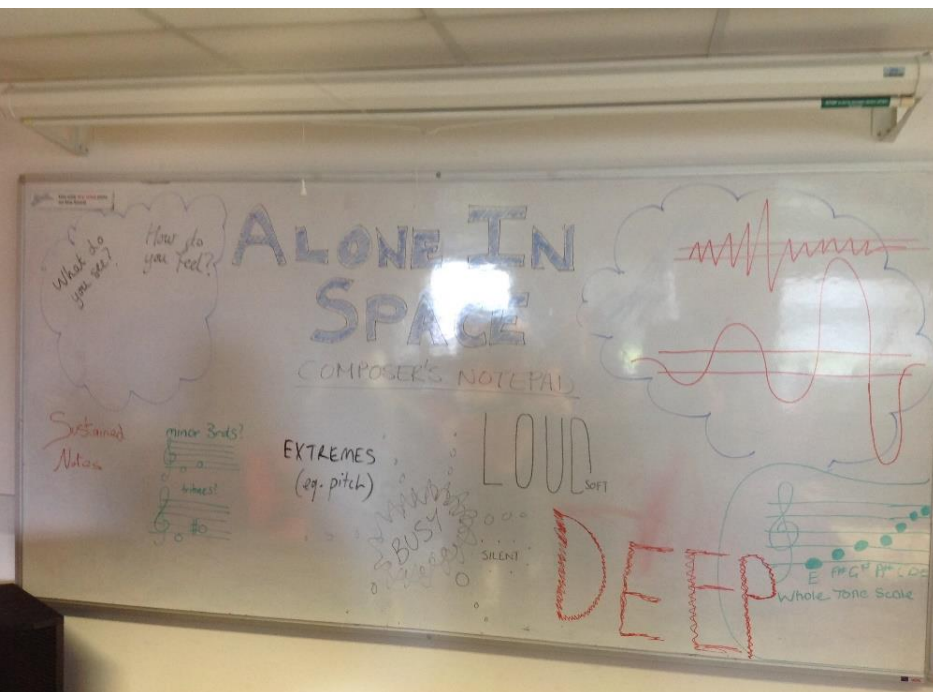 What do
you see?
How do
you feel?
ALONE IN
SPACE
COMPOSER'S NOTEPAD
Sustained
Notes
minor 3rds?
tritones?
EXTREMES
(eg. pitch)
BUSY
LOUD
SOFT
SILENT
DEEP
E F# G# A# C D
Whole Tone Scale